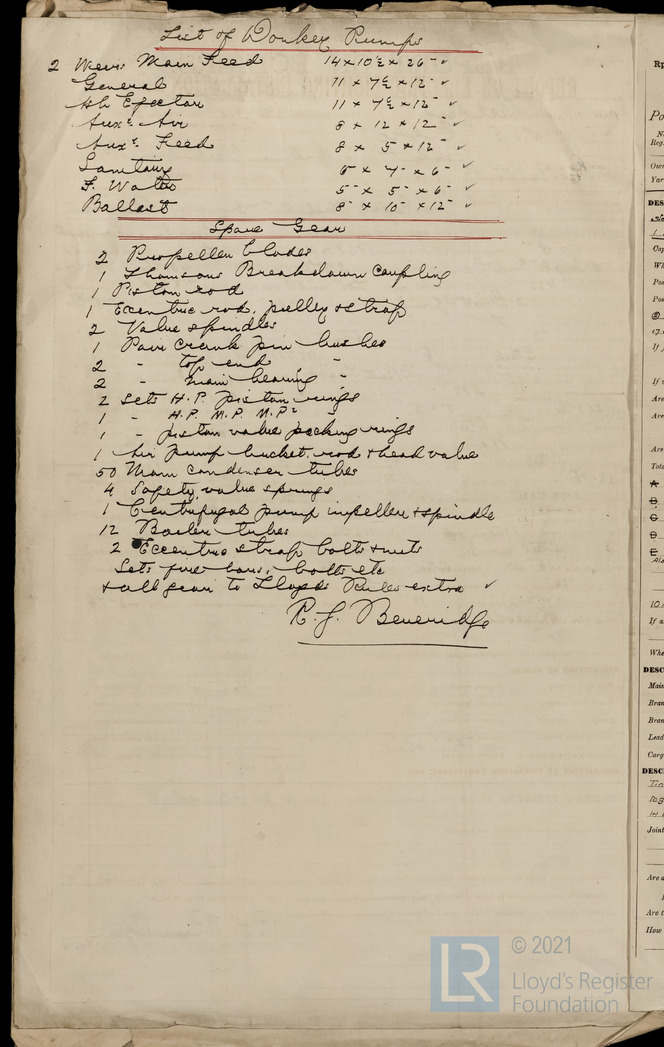 List of Donkey Pumps
2 Weirs Main Feed 14 x 10½ x 26 ✓
General 11 x 7½ x 12 ✓
Ash Ejector 11 x 7½ x 12 ✓
Auxy. Air 8 x 12 x 12 ✓
Auxy. Feed 8 x 5 x 12 ✓
Sanitary 6 x 4 x 6 ✓
F. Water 5 x 5 x 6 ✓
Ballast 8 x 10 x 12 ✓
Spare Gear
2 Propeller blades
1 Thomsons Breakdown coupling
1 Piston rod
1 Eccentric rod, pulley & strap
2 Valve spindles
1 Pair crank pin bushes
2 " top end "
2 " main bearing "
2 sets H.P. piston rings
1 " H.P. M.P. M.P² "
1 " piston valve packing rings
1 Air pump bucket, rod & head valve
50 Main condenser tubes
4 Safety valve springs
1 Centrifugal pump impeller & spindle
12 Boiler tubes
2 Eccentric strap bolts & nuts
Sets fire bars, bolts etc
& all gear to Lloyds Rules extra ✓
R. J. Beveridge
© 2021
LR
Lloyd's Register
Foundation
Rp
Po
Reg.
Own
Yar
DES
Cap
Wh
Pos
Pos
If
If
Are
Are
Are
Tota
A
B
C
D
E
10
If a
Whe
DESC
Main
Bran
Bran
Lead
Carg
DESC
Joint
Are a
Are t
How